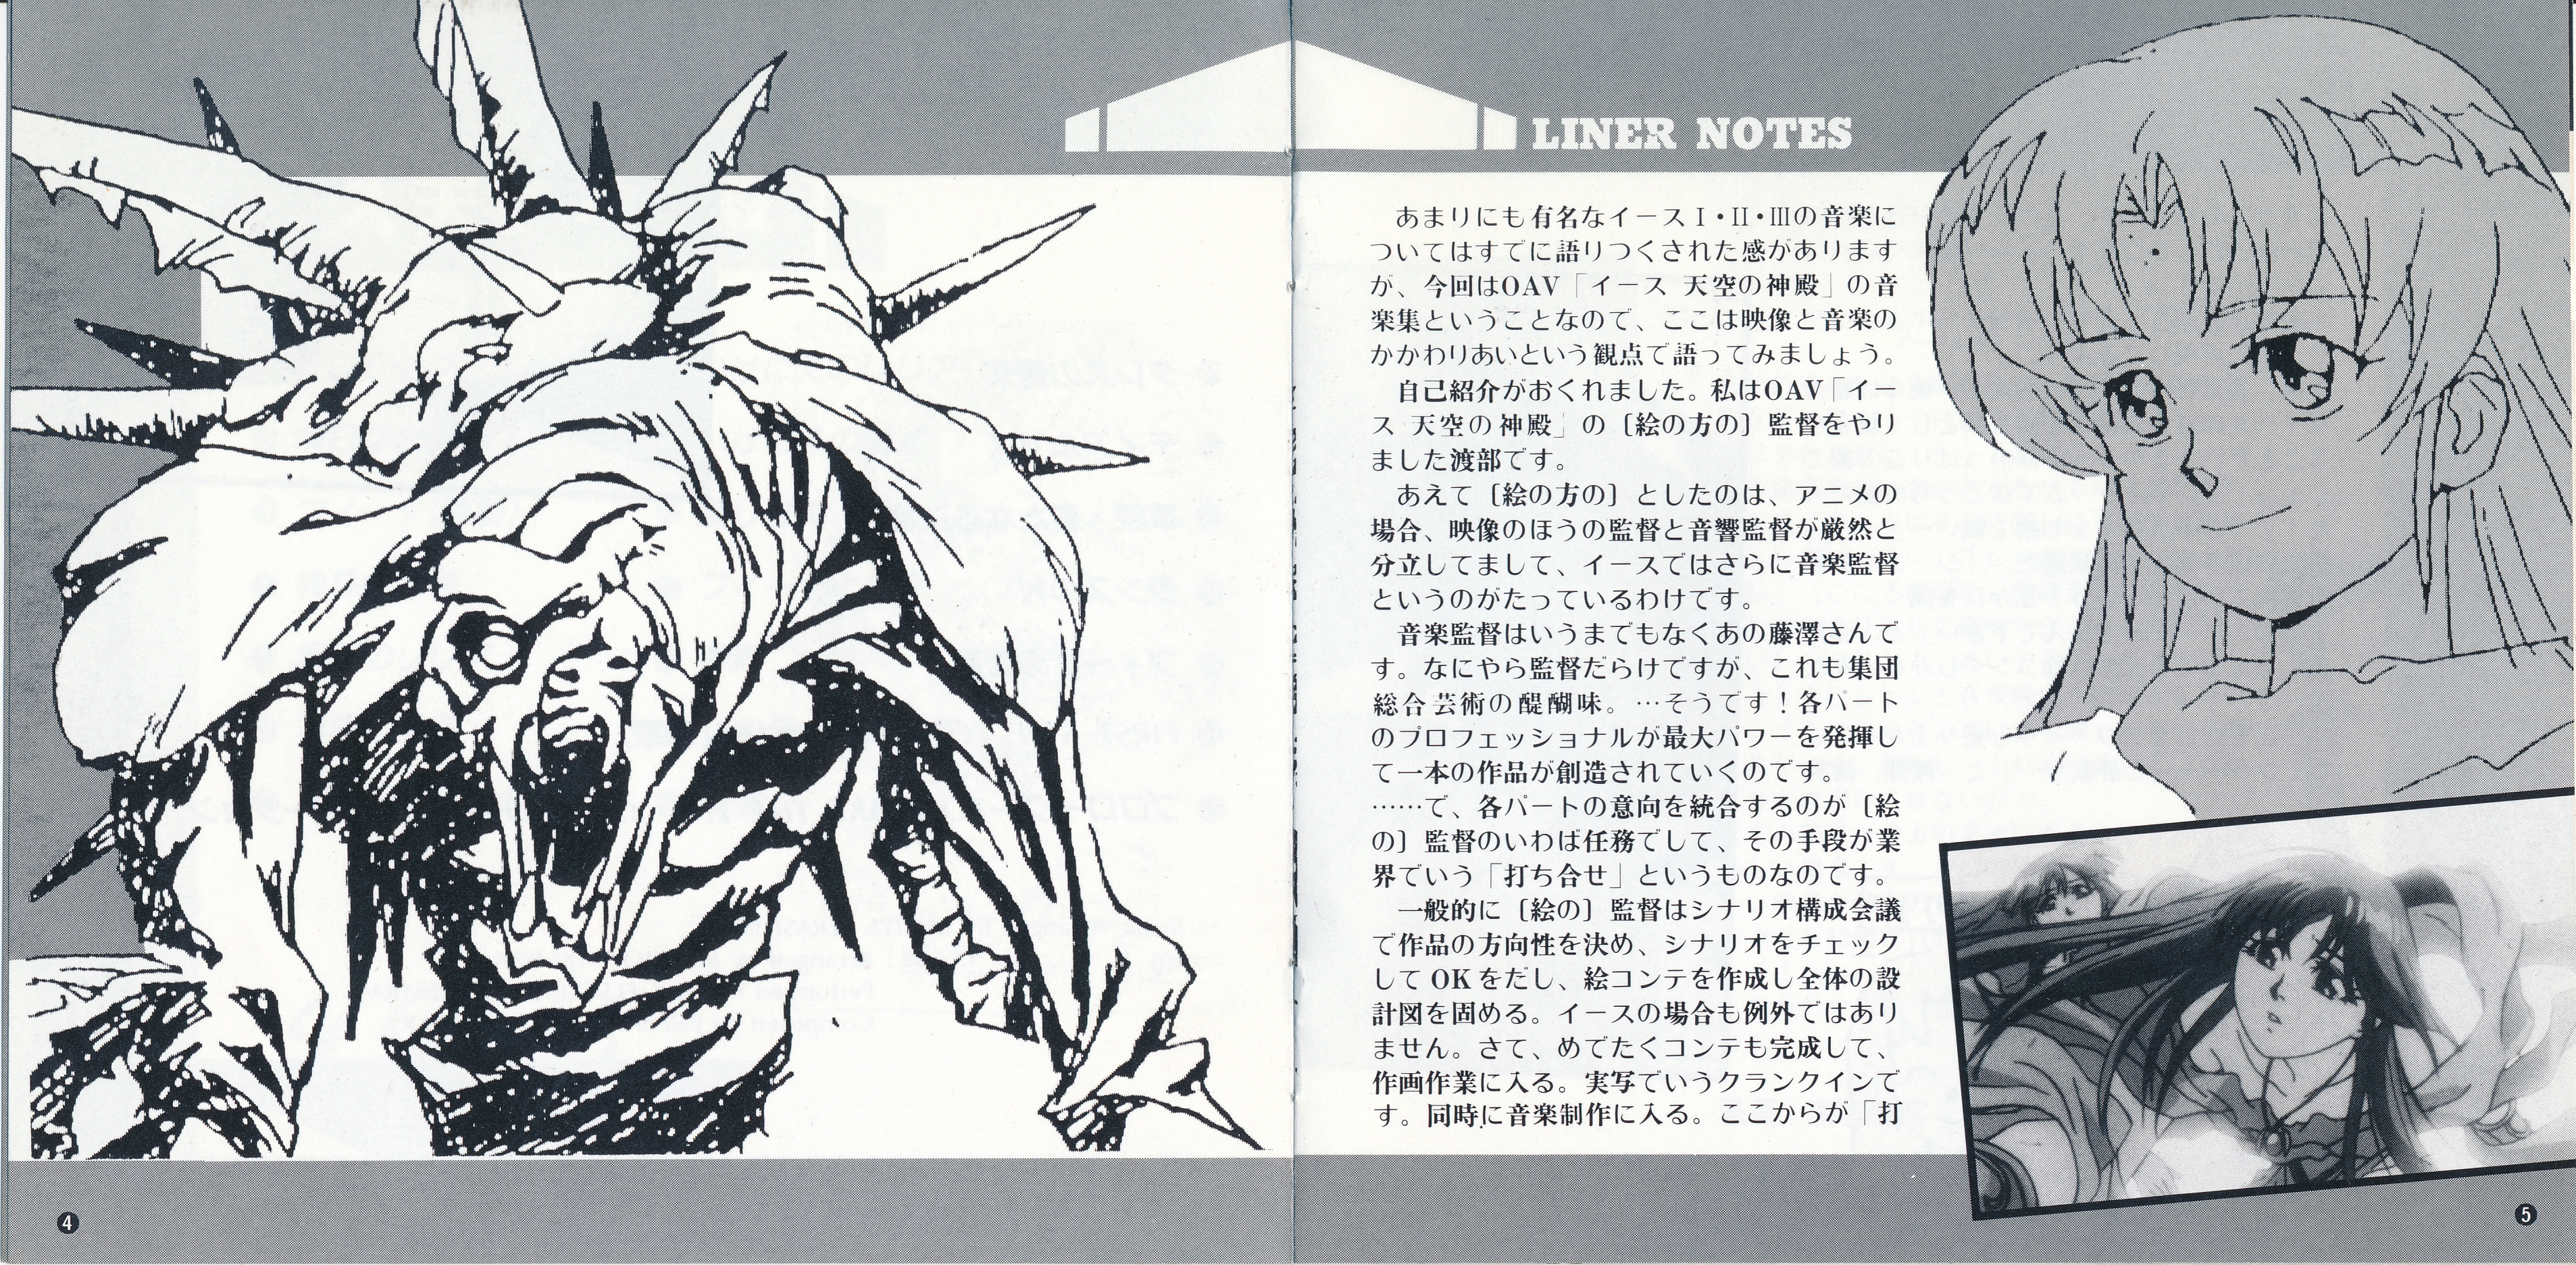 LINER NOTES
あまりにも有名なイースⅠ・Ⅱ・Ⅲの音楽に
ついてはすでに語りつくされた感があります
が、今回はOAV「イース 天空の神殿」の音
楽集ということなので、ここは映像と音楽の
かかわりあいという観点で語ってみましょう。
自己紹介がおくれました。私はOAV「イー
ス 天空の神殿」の〔絵の方の〕監督をやり
ました渡部です。
あえて〔絵の方の〕としたのは、アニメの
場合、映像のほうの監督と音響監督が厳然と
分立してまして、イースではさらに音楽監督
というのがたっているわけです。
音楽監督はいうまでもなくあの藤澤さんで
す。なにやら監督だらけですが、これも集団
総合芸術の醍醐味。…そうです！各パート
のプロフェッショナルが最大パワーを発揮し
て一本の作品が創造されていくのです。
……で、各パートの意向を統合するのが〔絵
の〕監督のいわば任務でして、その手段が業
界でいう「打ち合せ」というものなのです。
一般的に〔絵の〕監督はシナリオ構成会議
で作品の方向性を決め、シナリオをチェック
してOKをだし、絵コンテを作成し全体の設
計図を固める。イースの場合も例外ではあり
ません。さて、めでたくコンテも完成して、
作画作業に入る。実写でいうクランクインで
す。同時に音楽制作に入る。ここからが「打
4
5